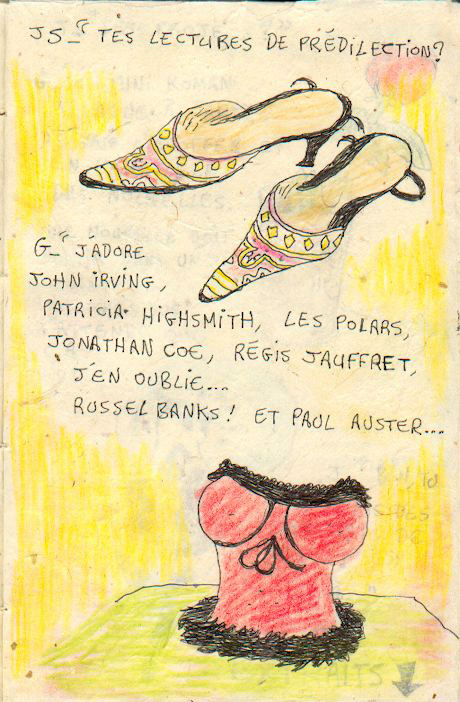 JS_" TES LECTURES DE PRÉDILECTION?
G_" J'ADORE
JOHN IRVING,
PATRICIA HIGHSMITH, LES POLARS,
JONATHAN COE, RÉGIS JAUFFRET,
J'EN OUBLIE....
RUSSEL BANKS! ET PAUL AUSTER...